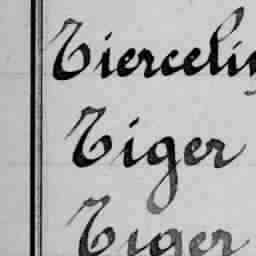 Tiercelin
Tiger
Tiger